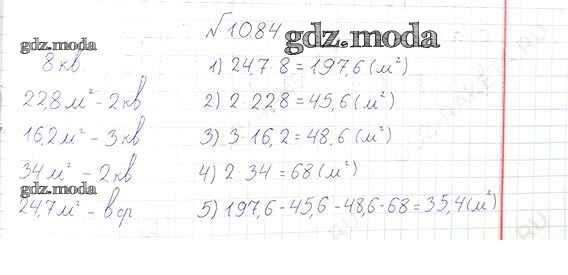 №1084
gdz.moda
gdz.moda
8 кв
1) 24,7·8 = 197,6 (м²)
22,8 м² - 2 кв
2) 2·22,8 = 45,6 (м²)
16,2 м² - 3 кв
3) 3·16,2 = 48,6 (м²)
34 м² - 2 кв
4) 2·34 = 68 (м²)
gdz.moda
24,7 м² - в ср
5) 197,6 - 45,6 - 48,6 - 68 = 35,4 (м²)